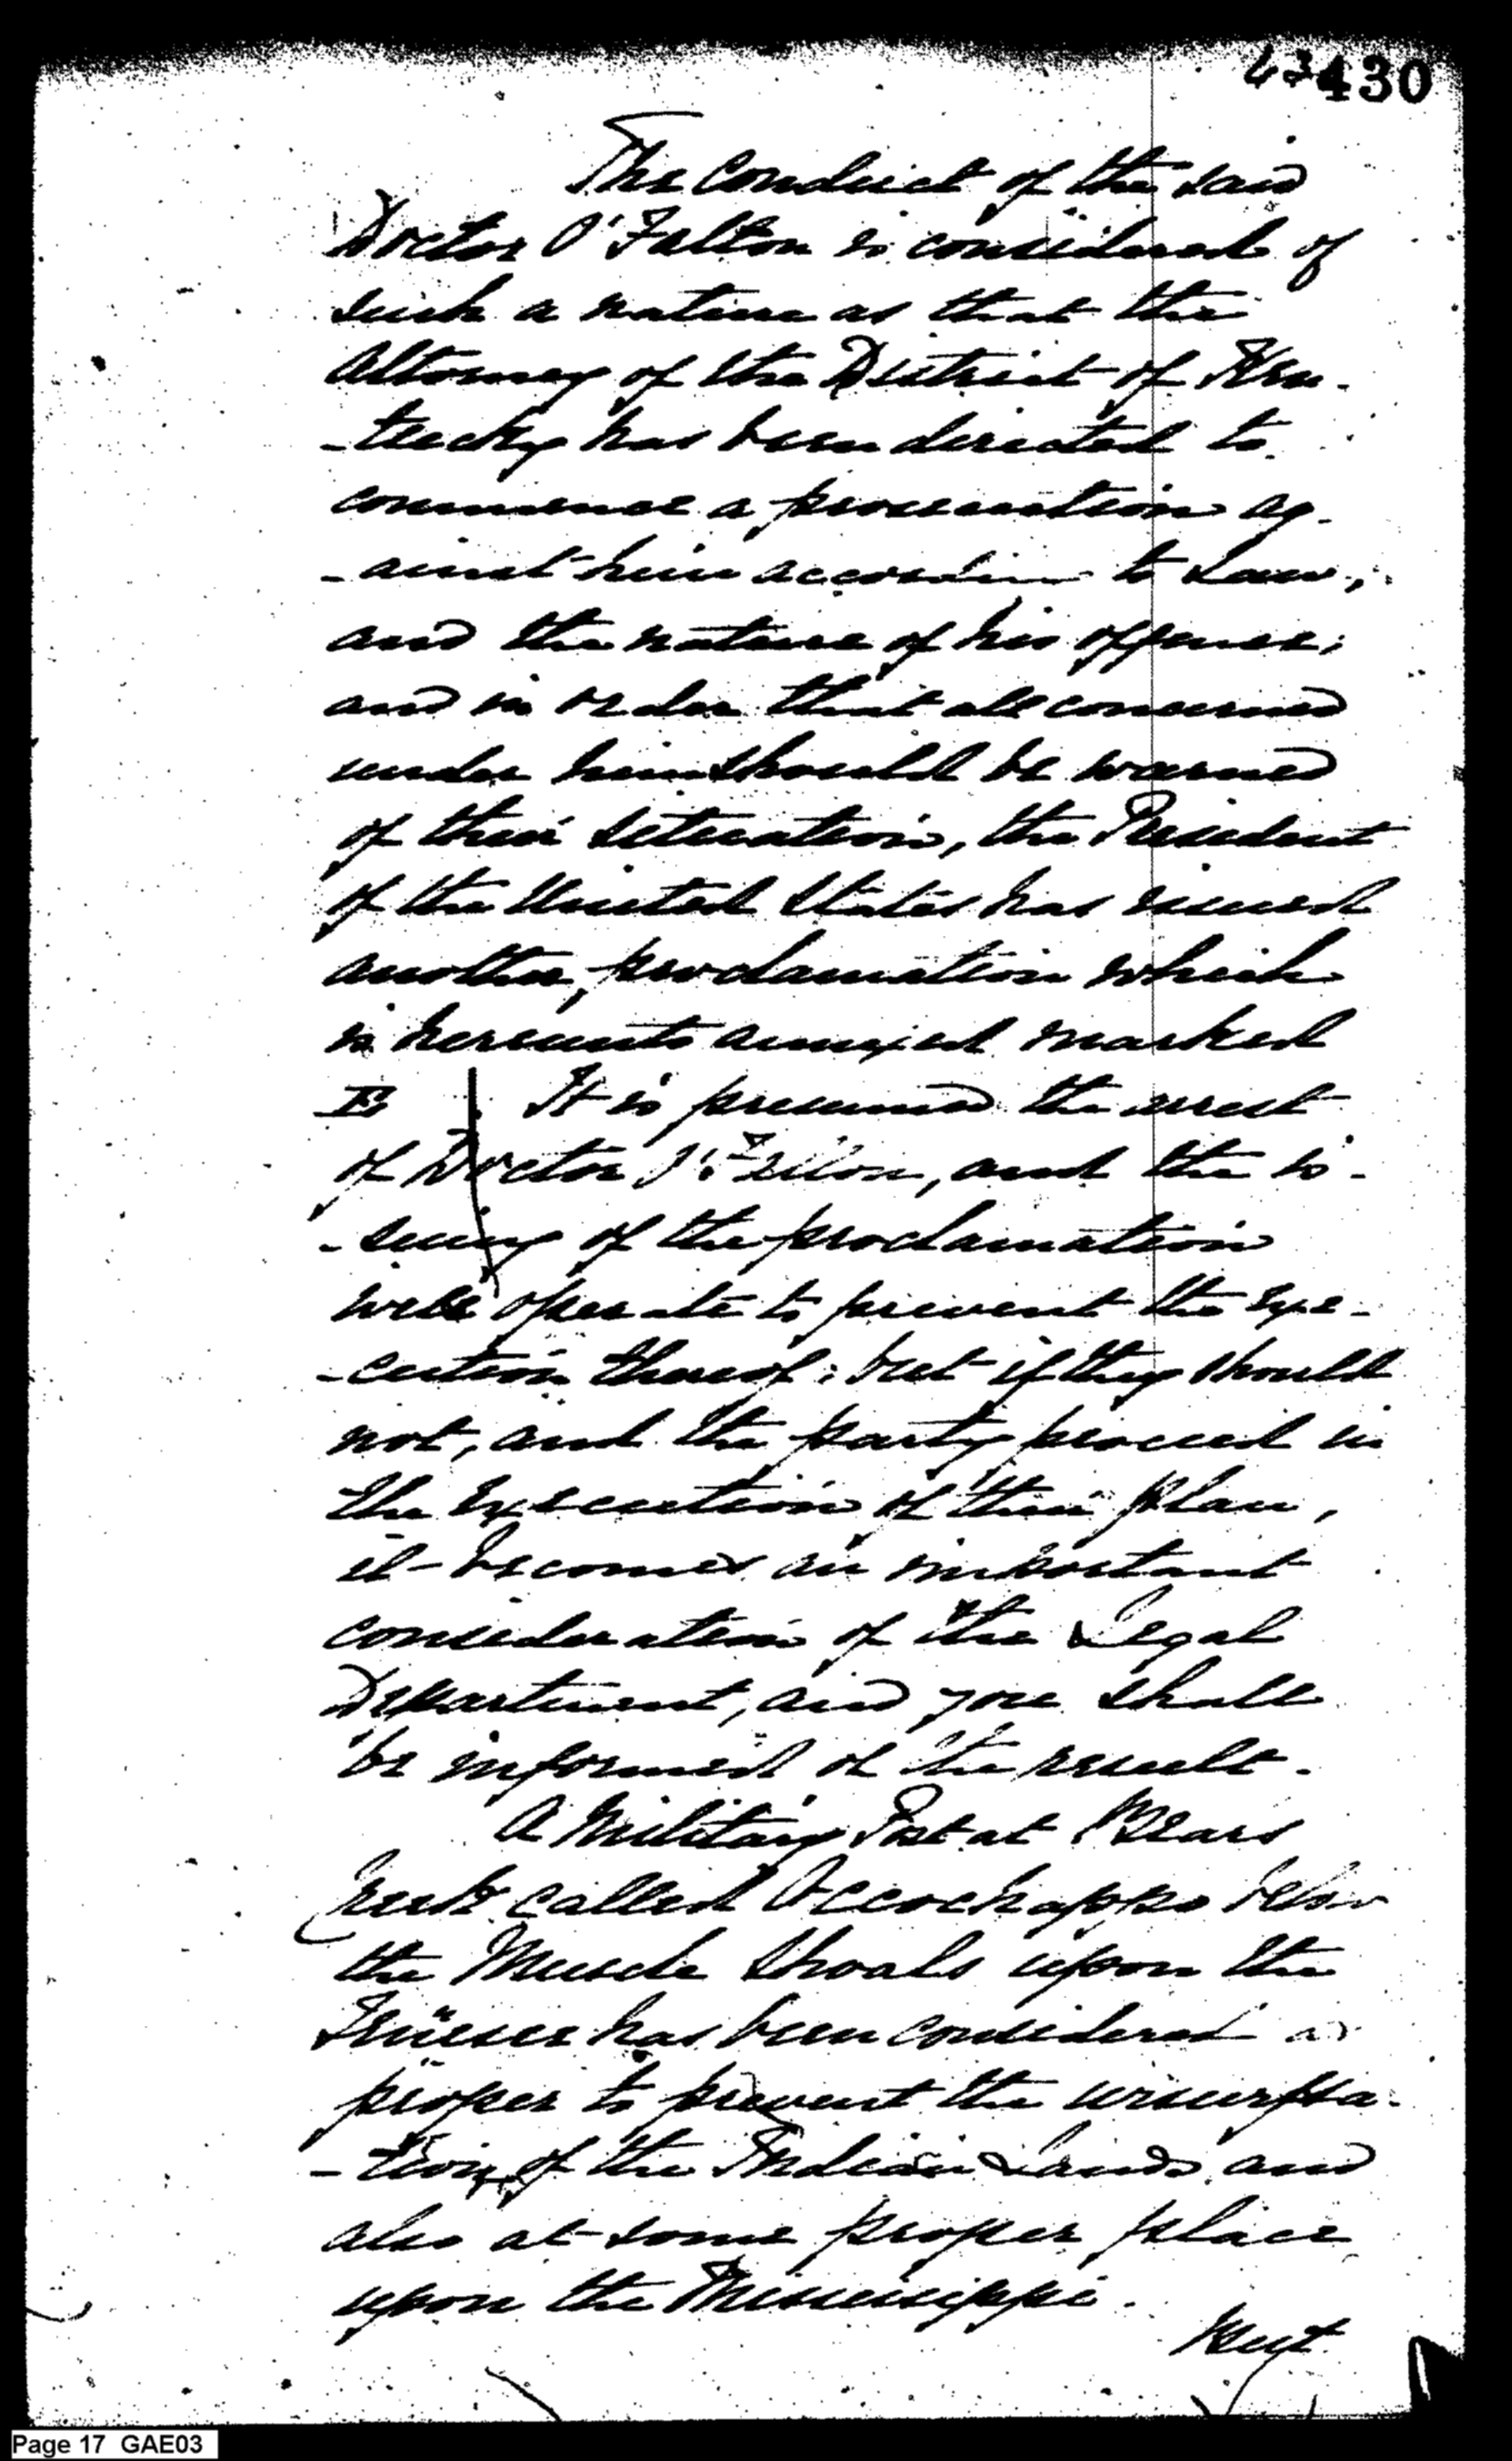 43430
The Conduct of the said
Doctor O'Fallon is considered of
such a nature as that the
Attorney of the District of Ken-
-tucky has been directed to
commence a prosecution ag-
-ainst him according to Law,
and the nature of his offense;
and in order that all concerned
under him should be warned
of their situation, the President
of the United States has issued
another, proclamation which
is hereunto annexed marked
E It is presumed the arrest
of Doctor O'Fallon, and the is-
-suing of the proclamation
will operate to prevent the exe-
-cution thereof; but if they should
not, and the party proceed in
the execution of their plan,
it becomes an important
consideration of the Legal
Department, and you shall
be informed of the result.
A Military Post at Bears
Creek called Occochappo below
the Muscle Shoals upon the
has been considered as
proper to prevent the usurpa-
-tion of the Indian Lands and
also at some proper place
upon the Mississippi.
But
Page 17 GAE03